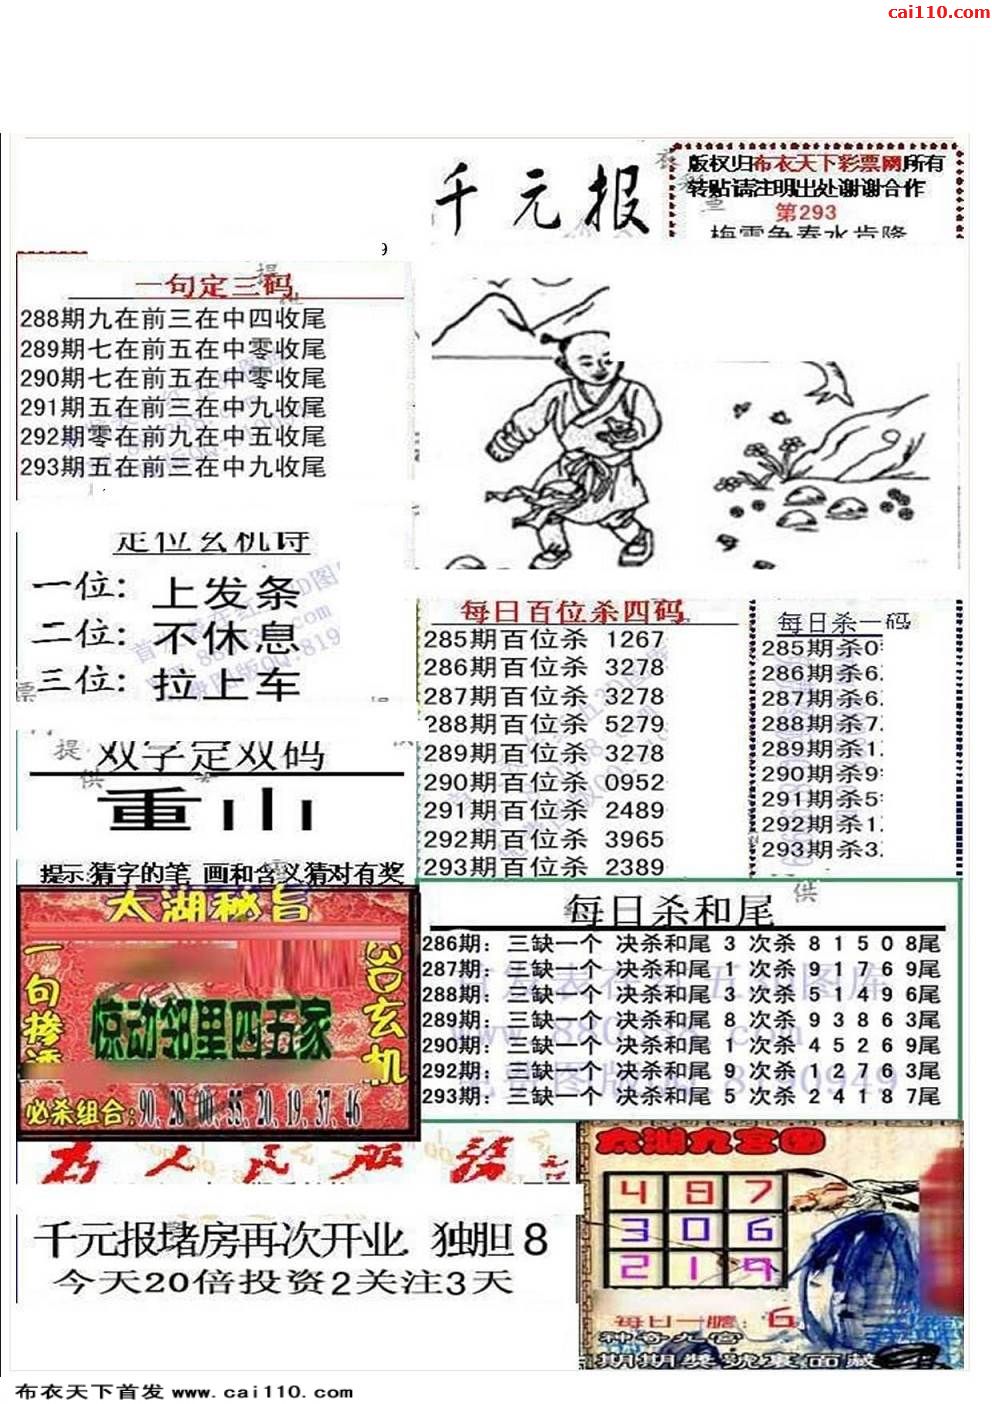 cai110.com
千元报
版权归布衣天下彩票网所有
转贴请注明出处谢谢合作
第293
梅雪争春水肯降
一句定三码
288期九在前三在中四收尾
289期七在前五在中零收尾
290期七在前五在中零收尾
291期五在前三在中九收尾
292期零在前九在中五收尾
293期五在前三在中九收尾
定位玄机诗
一位: 上发条
二位: 不休息
三位: 拉上车
双字定双码
重山
提示:猜字的笔 画和含义猜对有奖
每日百位杀四码
285期百位杀 1267
286期百位杀 3278
287期百位杀 3278
288期百位杀 5279
289期百位杀 3278
290期百位杀 0952
291期百位杀 2489
292期百位杀 3965
293期百位杀 2389
每日杀一码
285期杀0
286期杀6
287期杀6
288期杀7
289期杀1
290期杀9
291期杀5
292期杀1
293期杀3
每日杀和尾
286期: 三缺一个 决杀和尾 3 次杀 8 1 5 0 8尾
287期: 三缺一个 决杀和尾 1 次杀 9 1 7 6 9尾
288期: 三缺一个 决杀和尾 6 次杀 5 1 4 9 6尾
289期: 三缺一个 决杀和尾 8 次杀 9 3 8 6 3尾
290期: 三缺一个 决杀和尾 1 次杀 4 5 2 6 9尾
292期: 三缺一个 决杀和尾 9 次杀 1 2 7 6 3尾
293期: 三缺一个 决杀和尾 5 次杀 2 4 1 8 7尾
太湖秘旨
一句掺透
3D玄机
惊动邻里四五家
必杀组合:90,28,00,55,20,19,37,46
为人民服务
千元报堵房再次开业 独胆 8
今天20倍投资2关注3天
太湖九宫图
4 8 7
3 0 6
2 1 9
每日一胆: 6
神奇九宫
期期奖号里面藏
布衣天下首发 www.cai110.com